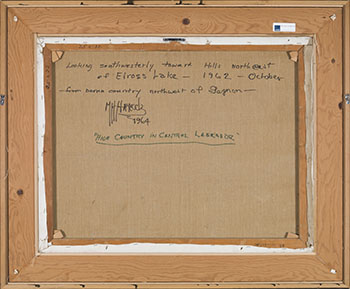 Looking southwesterly toward Hills northeast
of Elross Lake - 1962 - October
- country northwest of Gagnon -
1964
"HIGH COUNTRY IN CENTRAL LABRADOR"